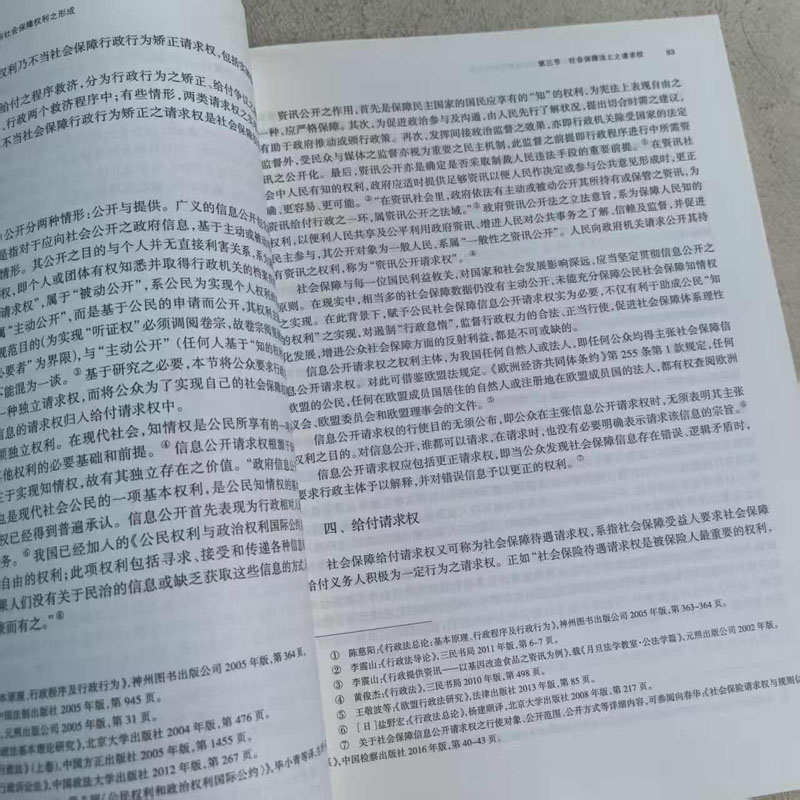 社会保障权利之形成
权利乃不当社会保障行政行为矫正请求权,包括实
给付之程序救济,分为行政行为之矫正、给付争议之
、行政两个救济程序中;有些情形,两类请求权之
不当社会保障行政行为矫正之请求权是社会保障
公开分两种情形:公开与提供。广义的信息公开包
是指对于应向社会公开之政府信息,基于主动或被动
情形。其公开之目的与个人并无直接利害关系,系为
权,即个人或团体有权知悉并取得行政机关的档案
请求权”,属于“被动公开”,系公民为实现个人权利
属“主动公开”,而是基于公民的申请而公开,其权利
规范目的(为实现“听证权”必须调阅卷宗,故卷宗阅
必要者”为界限),与“主动公开”(任何人基于“知的权利
不能混为一谈。③基于研究之必要,本节将公众要求行
一种独立请求权,而将公众为了实现自己的社会保障
信息的请求权归入给付请求权中。
项独立权利。在现代社会,知情权是公民所享有的一
其他权利的必要基础和前提。④信息公开请求权根源于
在于实现知情权,故有其独立存在之价值。“政府信息公
也是现代社会公民的一项基本权利,是公民知情权的
权已经得到普遍承认。信息公开首先表现为行政相对人
务。⑥我国已经加入的《公民权利与政治权利国际公约
自由的权利;此项权利包括寻求、接受和传递各种信息
果人们没有关于民治的信息或缺乏获取这些信息的方式
兼而有之。”⑧
本原理、行政程序及行政行为》,神州图书出版公司 2005 年版,第 364 页。
中国法制出版社 2005 年版,第 945 页。
,元照出版公司 2005 年版,第 31 页。
政法基本理论研究》,北京大学出版社 2004 年版,第 476 页。
行政法》(上卷),中国方正出版社 2005 年版,第 1455 页。
行政诉讼法》,中国政法大学出版社 2012 年版,第 267 页。
《公民权利和政治权利国际公约》),毕小青等译,生
第三节 社会保障法上之请求权 63
资讯公开之作用,首先是保障民主国家的国民应享有的“知”的权利,为宪法上表现自由之
一种,应严格保障。其次,为促进政治参与及沟通,由人民先行了解状况,提出切合时需之建议,
有助于政府推动或颁行政策。再次,发挥间接政治监督之效果,亦即行政机关除受国家的法定
监督外,受民众与媒体之监督亦视为重要之民主机制,此监督之前提即行政程序进行中所需资
讯之公开化。最后,资讯公开亦是确定是否采取制裁人民违法手段的重要前提。①在资讯社
会中人民有知的权利,政府应适时提供足够资讯以便人民作决定或参与公共意见形成时,更正
确、更容易、更可能。②“在资讯社会里,政府依法有主动或被动公开其所持有或保管之资讯,为
资讯给付行政之一环,属资讯公开之法域。”③政府资讯公开法之立法意旨,系为保障人民知的
权利,以便利人民共享及公平利用政府资讯、增进人民对公共事务之了解、信赖及监督,并促进
民主参与,其公开对象为一般人民,系属“一般性之资讯公开”。人民向政府机关请求公开其持
有资讯之权利,称为“资讯公开请求权”。④
社会保障与每一位国民利益攸关,对国家和社会发展影响深远,应当坚定贯彻信息公开之
原则。在现实中,相当多的社会保障数据仍没有主动公开,未能充分保障公民社会保障知情权
之实现。在此背景下,赋予公民社会保障信息公开请求权实为必要,不仅有利于助成公民“知
的权利”之实现,对遏制“行政怠惰”,监督行政权力的合法、正当行使,促进社会保障体系理性
化发展,增进公众社会保障方面的反射利益,都是不可或缺的。
信息公开请求权之权利主体,为我国任何自然人或法人,即任何公众均得主张社会保障信
息公开请求权。对此可借鉴欧盟法规定。《欧洲经济共同体条约》第 255 条第 1 款规定,任何
欧盟的公民,任何在欧盟成员国居住的自然人或注册地在欧盟成员国的法人,都有权查阅欧洲
议会、欧盟委员会和欧盟理事会的文件。⑤
信息公开请求权的行使目的无须公布,即公众在主张信息公开请求权时,无须表明其主张
权利之目的。对信息公开,谁都可以请求,在请求时,也没有必要明确表示请求该信息的宗旨。⑥
信息公开请求权应包括更正请求权,即当公众发现社会保障信息存在错误、逻辑矛盾时,
要求行政主体予以解释,并对错误信息予以更正的权利。⑦
四、给付请求权
社会保障给付请求权又可称为社会保障待遇请求权,系指社会保障受益人要求社会保障
给付义务人积极为一定行为之请求权。正如“社会保险待遇请求权是被保险人最重要的权利,
① 陈慈阳:《行政法总论:基本原理、行政程序及行政行为》,神州图书出版公司 2005 年版,第 363-364 页。
② 李震山:《行政法导论》,三民书局 2011 年版,第 6-7 页。
③ 李震山:《行政提供资讯——以基因改造食品之资讯为例》,载《月旦法学教室·公法学篇》,元照出版公司 2002 年版,
④ 黄俊杰:《行政法》,三民书局 2010 年版,第 498 页。
⑤ 王敬波等:《欧盟行政法研究》,法律出版社 2013 年版,第 85 页。
⑥ [日]盐野宏:《行政法总论》,杨建顺译,北京大学出版社 2008 年版,第 217 页。
⑦ 关于社会保障信息公开请求权之行使对象、公开范围、公开方式等详细内容,可参阅向春华:《社会保险请求权与规则
》,中国检察出版社 2016 年版,第 40-43 页。